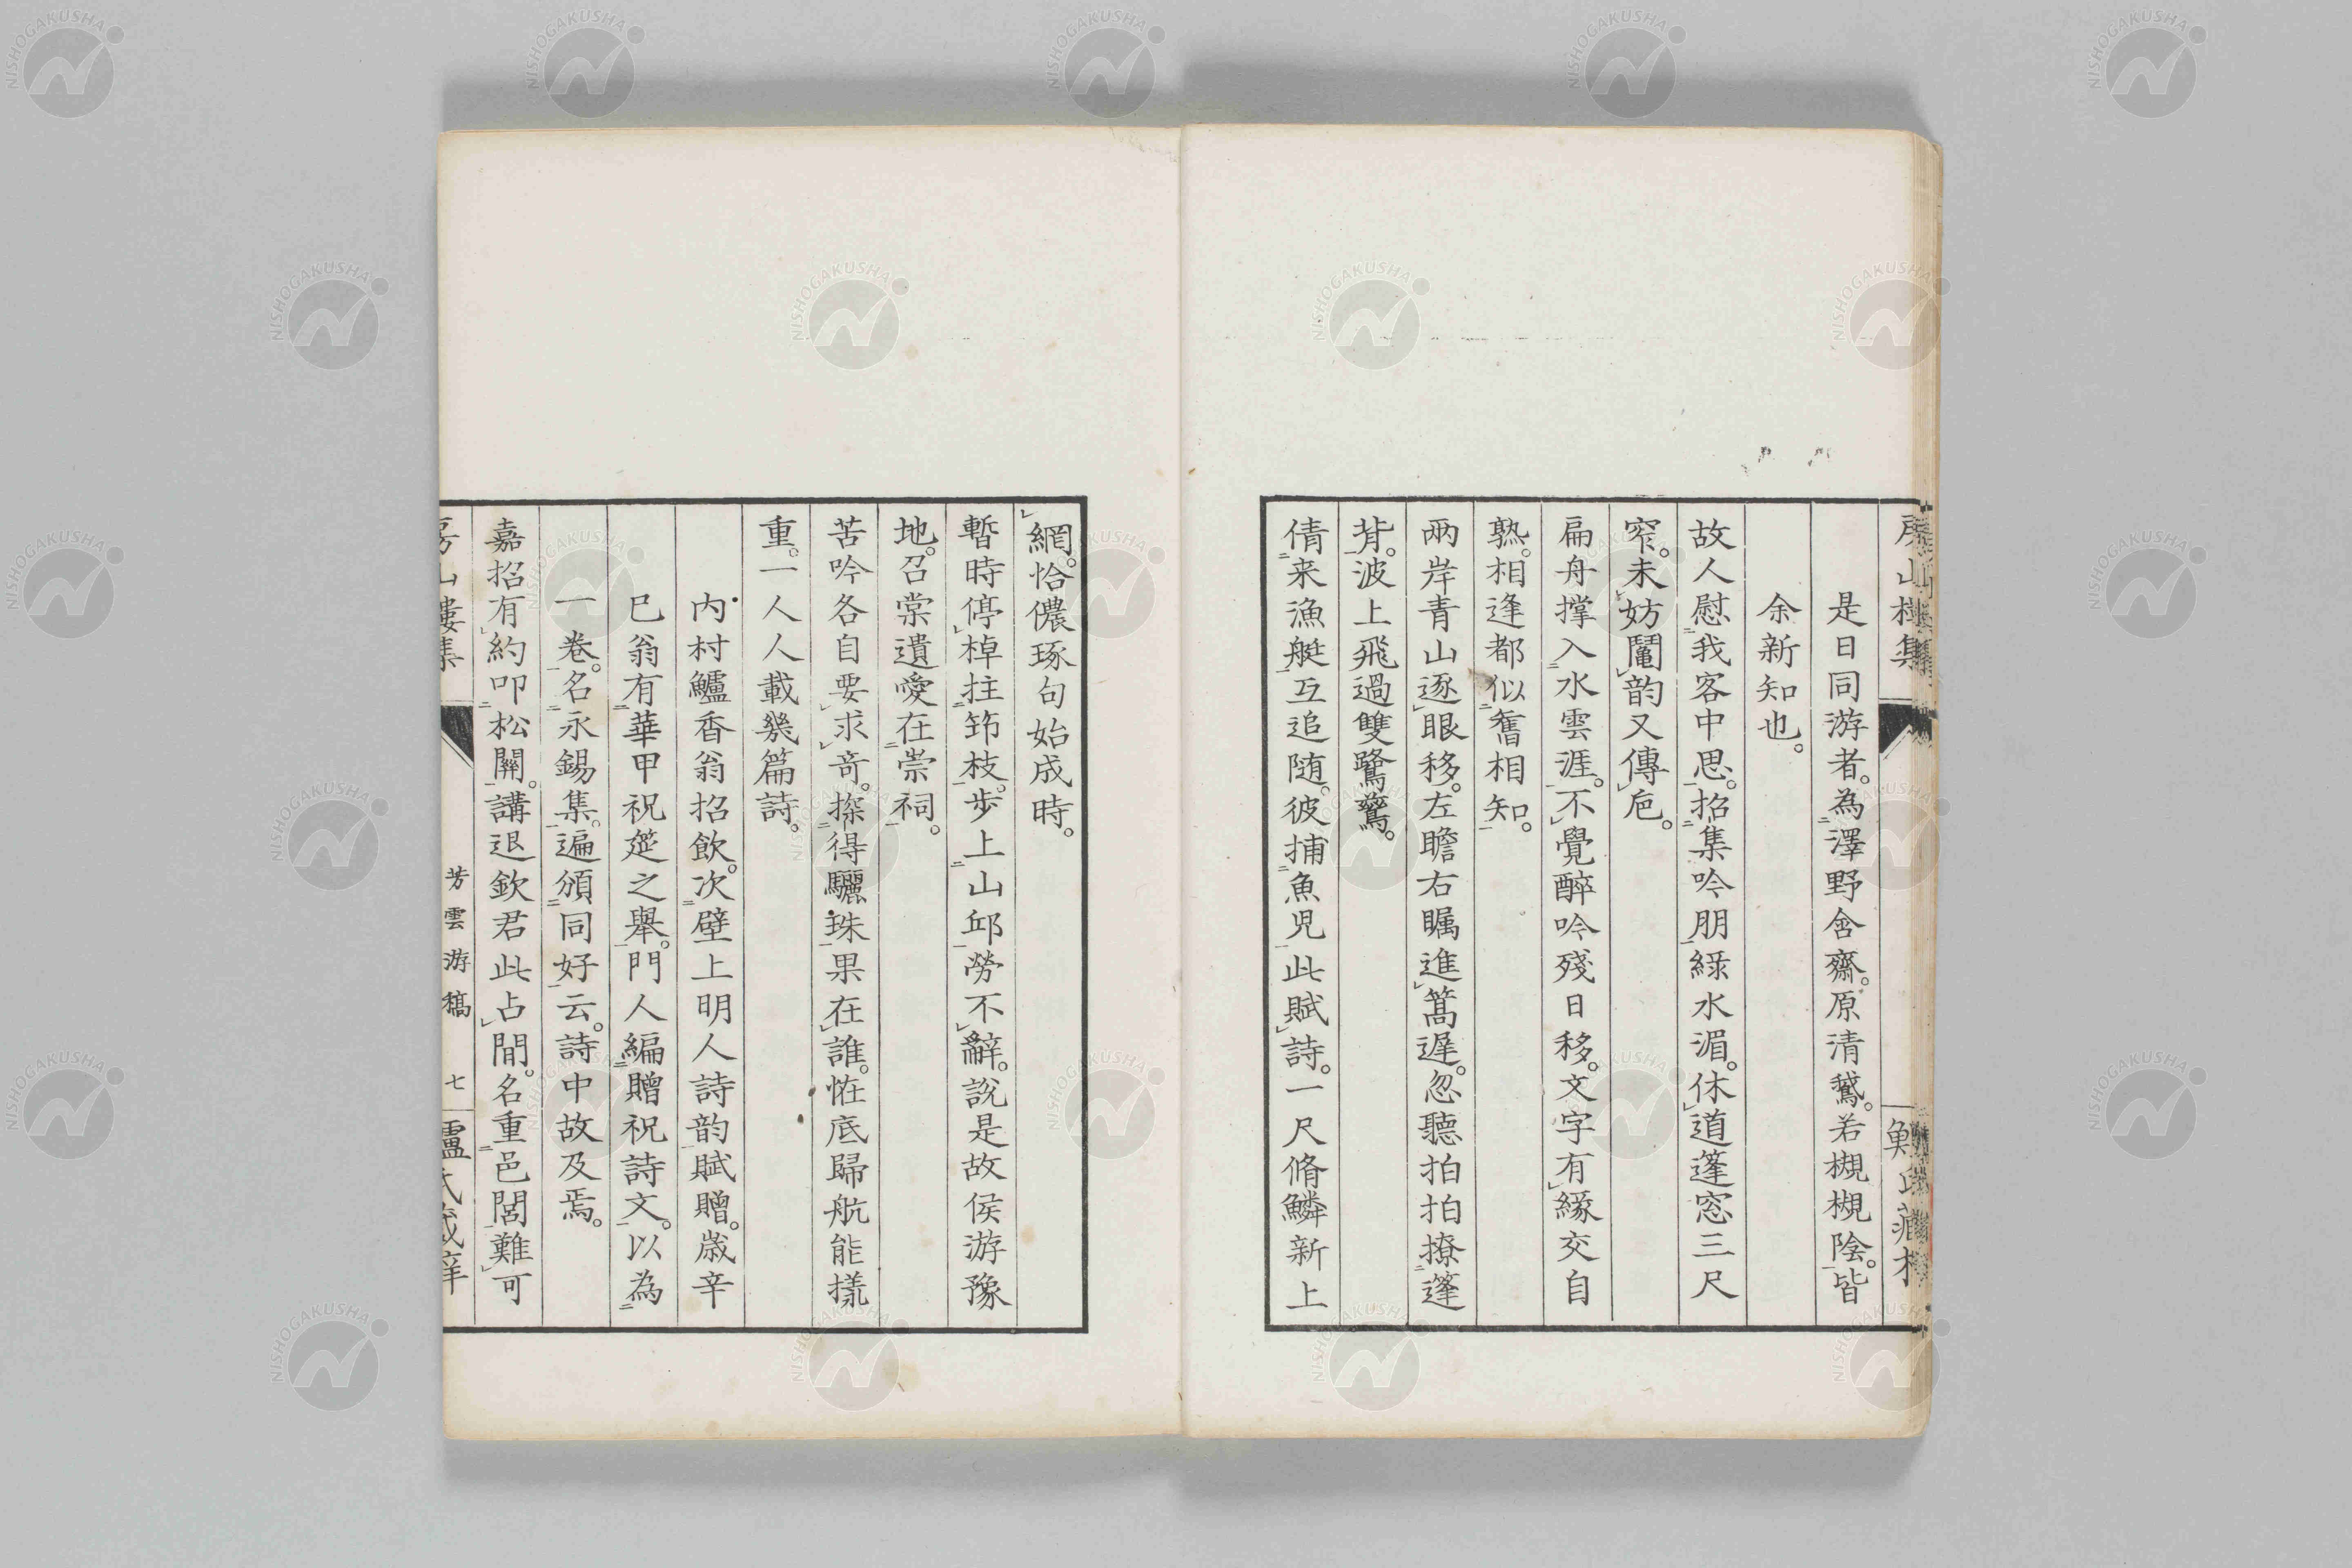 是日同游者。為澤野含齋。原清鷲。若槻槻陰。皆
余新知也。
故人慰我客中思。招集吟朋綠水湄。休道蓬窓三尺
窄。未妨鬮韵又傳巵。
扁舟撑入水雲涯。不覺醉吟殘日移。文字有緣交自
熟。相逢都似舊相知。
兩岸青山逐眼移。左瞻右矚進篙遲。忽聽拍拍撩蓬
背。波上飛過雙鷺鷥。
倩来漁艇互追随。彼捕魚児此賦詩。一尺脩鱗新上
網。恰儂琢句始成時。
暫時停棹拄笻枝。步上山邱勞不辭。說是故侯游豫
地。召棠遺愛在崇祠。
苦吟各自要求奇。探得驪珠果在誰。恠底歸航能㨾
重。一人人載幾篇詩。
内村鱸香翁招飲。次壁上明人詩韵賦贈。歲辛
巳翁有華甲祝筵之舉。門人編贈祝詩文。以為
一卷。名永錫集。遍頒同好云。詩中故及焉。
嘉招有約叩松關。講退欽君此占間。名重邑閭難可
芳雲游稿 七